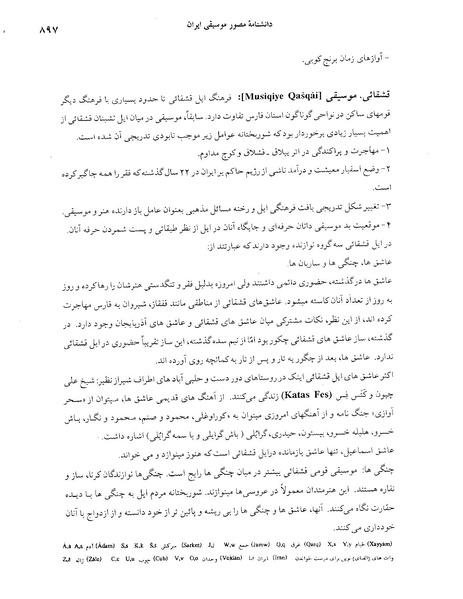 دانشنامهٔ مصور موسیقی ایران
۸۹۷
- آوازهای زمان برنج‌کوبی.
قشقائی، موسیقی [Musiqiye Qašqâi]: فرهنگ ایل قشقائی تا حدود بسیاری با فرهنگ دیگر
قومهای ساکن در نواحی گوناگون استان فارس تفاوت دارد. سابقاً، موسیقی در میان ایل نشینان قشقائی از
اهمیت بسیار زیادی برخوردار بود که شوربختانه عوامل زیر موجب نابودی تدریجی آن شده است.
۱- مهاجرت و پراکندگی در اثر ییلاق ـ قشلاق و کوچ مداوم.
۲- وضع اسفبار معیشت و درآمد ناشی از رژیم حاکم بر ایران در ۲۲ سال گذشته که فقر را همه جاگیر کرده
است.
۳- تغییر شکل تدریجی بافت فرهنگی ایل و رخنه مسائل مذهبی بعنوان عامل باز دارنده هنر و موسیقی.
۴- موقعیت بد موسیقی دانان حرفه‌ای و جایگاه آنان در ایل از نظر طبقاتی و پست شمردن حرفه آنان.
در ایل قشقائی سه گروه نوازنده وجود دارند که عبارتند از:
عاشق ها، چنگی ها و ساربان ها.
عاشق ها درگذشته، حضوری دائمی داشتند ولی امروزه بدلیل فقر و تنگدستی هنرشان را رها کرده و روز
به روز از تعداد آنان کاسته میشود. عاشق‌های قشقائی از مناطقی مانند قفقاز، شیروان به فارس مهاجرت
کرده اند، از این نظر، نکات مشترکی میان عاشق های قشقائی و عاشق های آذربایجان وجود دارد. در
گذشته، ساز عاشق های قشقائی چگور بود امّا از نیم سده گذشته، این ساز تقریباً حضوری در ایل قشقائی
ندارد. عاشق ها، بعد از چگور به تار و پس از تار به کمانچه روی آورده اند.
اکثر عاشق های ایل قشقائی اینک در روستاهای دور دست و حلبی آباد های اطراف شیراز نظیر: شیخ علی
چپون و کَتَس فِس (Katas Fes) زندگی می‌کنند. از آهنگ های قدیمی عاشق ها، میتوان از «سحر
آوازی» جنگ نامه و از آهنگهای امروزی میتوان به «کوراوغلی، محمود و صنم، محمود و نگار، باش
خسرو، هلیله خسرو، بیستون، حیدری، گرائلی ( باش گرایلی و یا سمه گرائلی) اشاره داشت.
عاشق اسماعیل، تنها عاشق بازمانده در ایل قشقائی است که هنوز مینوازد و می خواند.
چنگی ها: موسیقی قومی قشقائی بیشتر در میان چنگی ها رایج است. چنگی‌ها نوازندگان کرنا، ساز و
نقاره هستند. این هنرمندان معمولاً در عروسی‌ها مینوازند. شوربختانه مردم ایل به چنگی ها با دیده
حقارت نگاه می‌کنند. آنها، عاشق ها و چنگی ها را بی ریشه و پائین تر از خود دانسته و از ازدواج با آنان
خودداری می‌کنند.